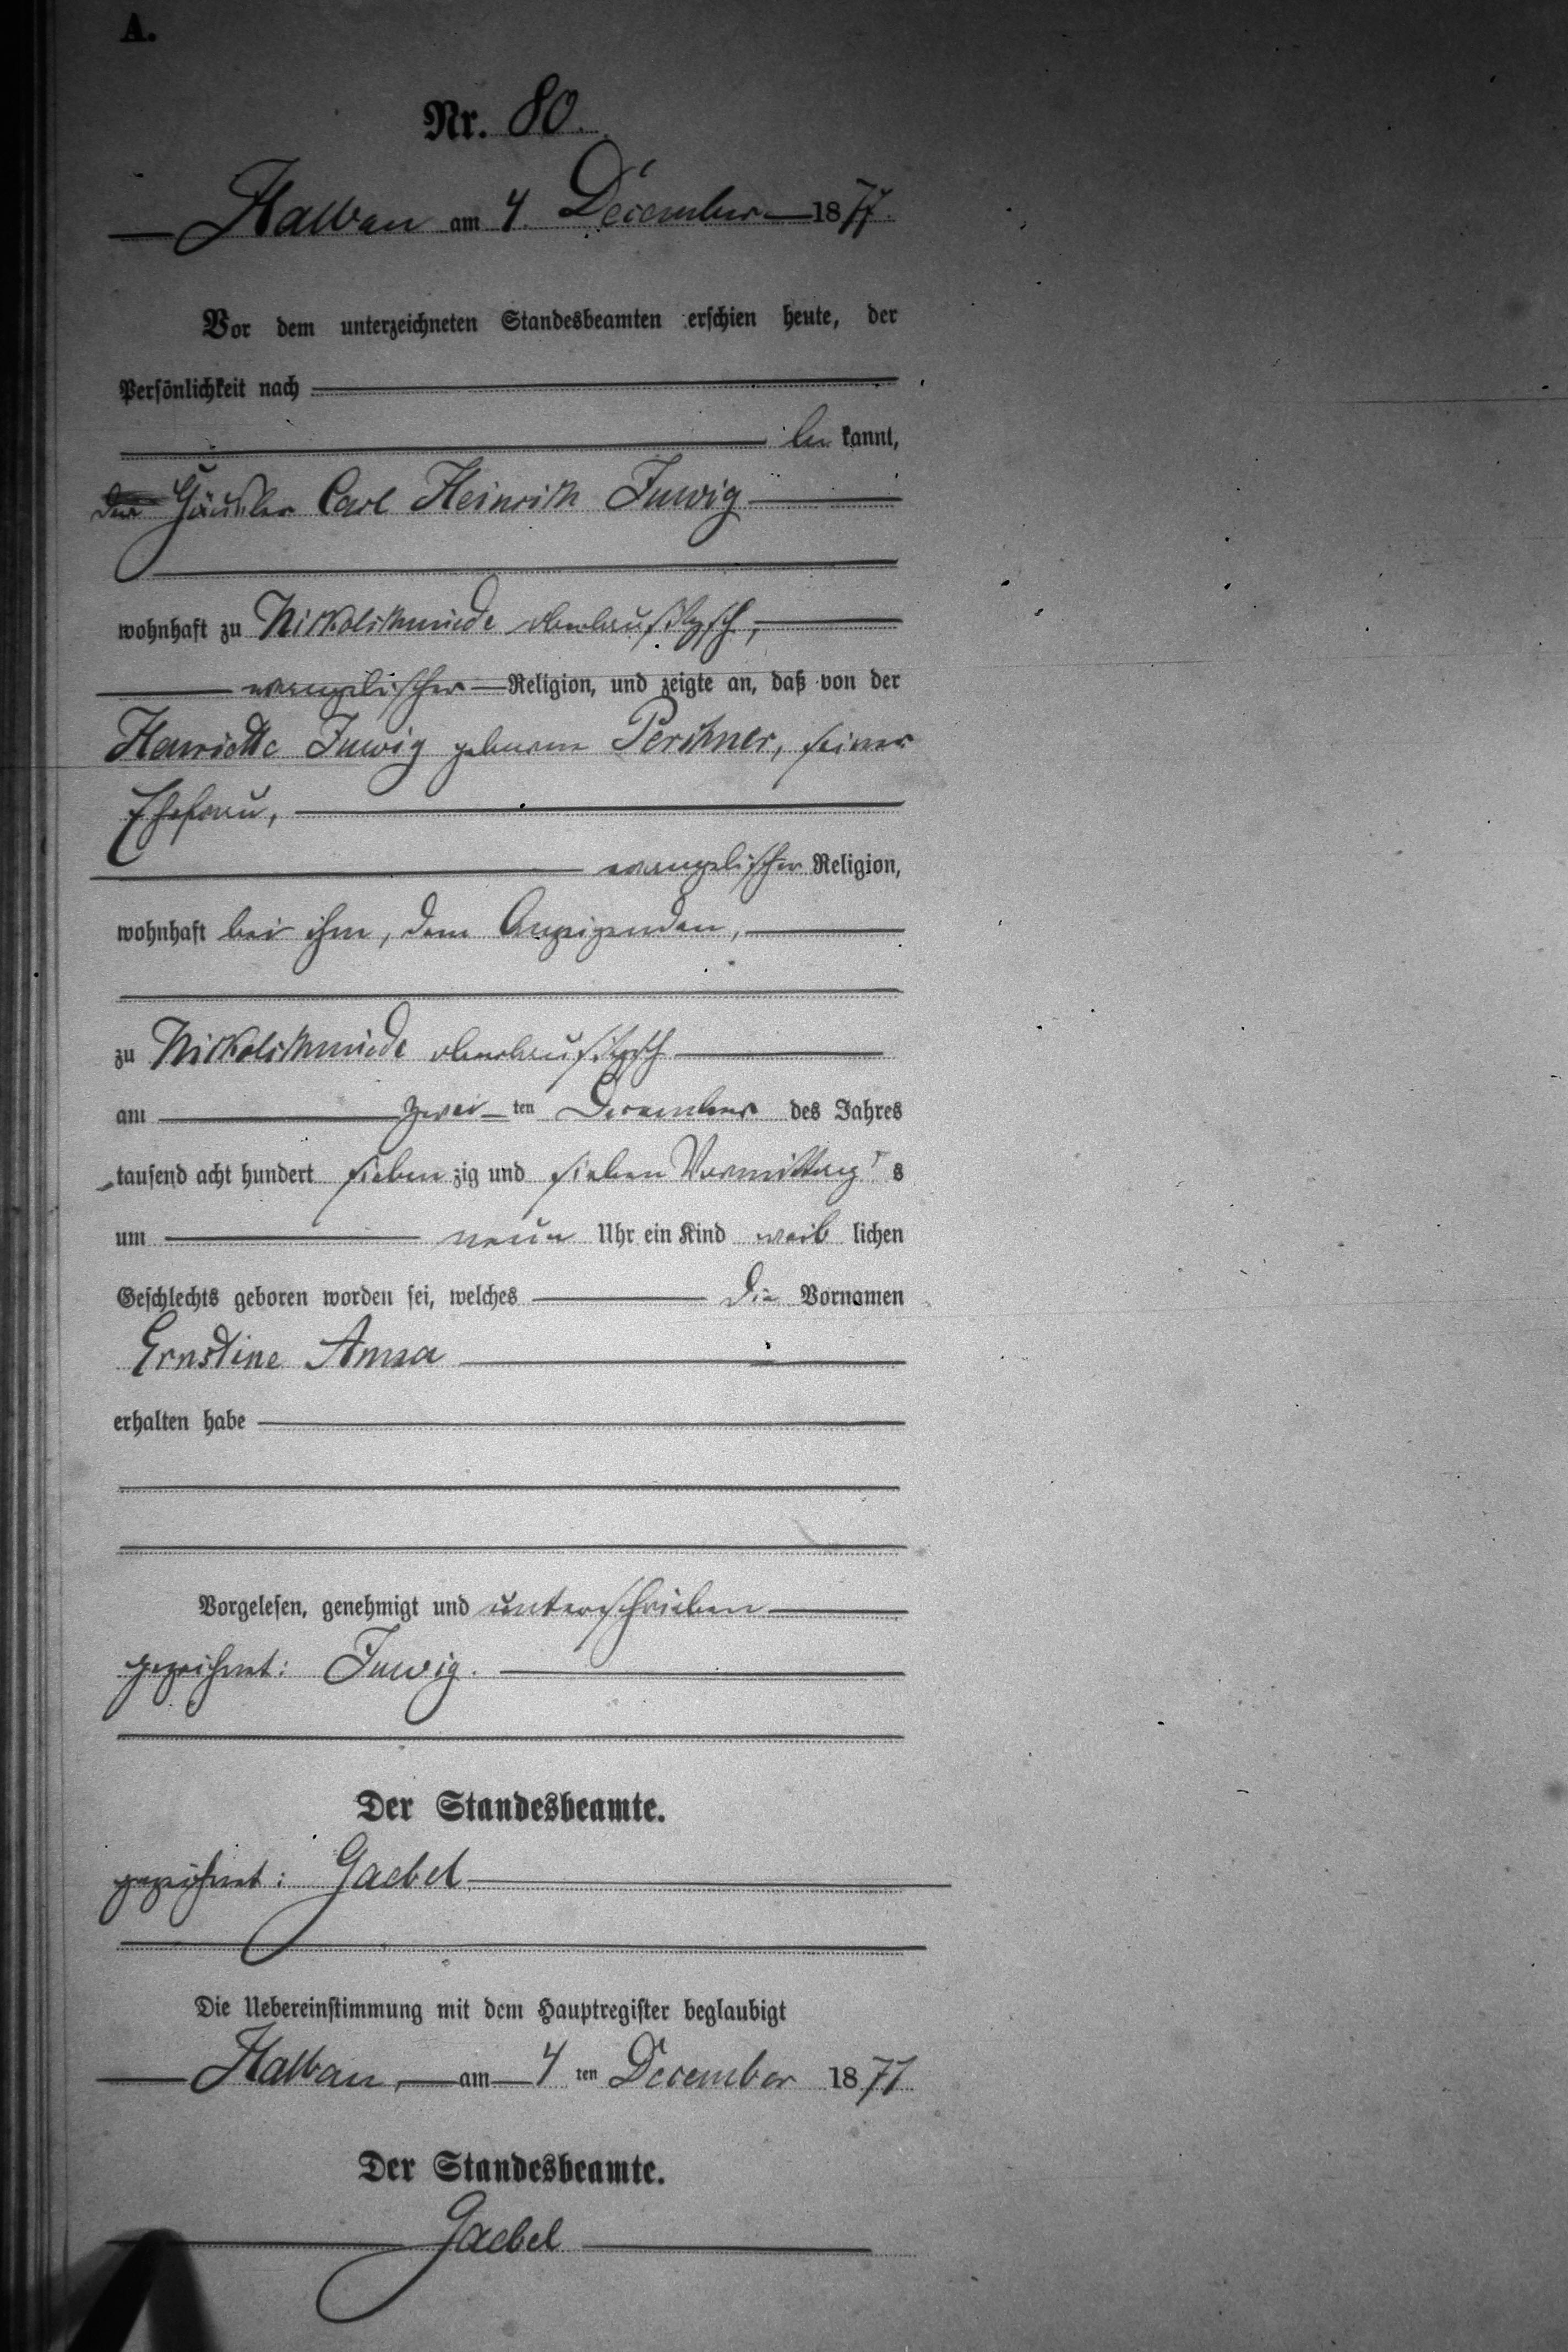 A.
Nr. 80.
Halbau am 4. December 1877.
Vor dem unterzeichneten Standesbeamten erschien heute, der
Persönlichkeit nach
be kannt,
der Häusler Carl Heinrich Juwig
wohnhaft zu Nikolschmiede oberlausitzsch,
evangelischer Religion, und zeigte an, daß von der
Henriette Juwig geborene Perschner, seiner
Ehefrau,
evangelischer Religion,
wohnhaft bei ihm, dem Anzeigenden,
zu Nikolschmiede oberlausitzsch
am zwei ten December des Jahres
tausend acht hundert sieben zig und sieben Vormittag s
um neun Uhr ein Kind weib lichen
Geschlechts geboren worden sei, welches die Vornamen
Ernstine Anna
erhalten habe
Vorgelesen, genehmigt und unterschrieben
gezeichnet: Juwig.
Der Standesbeamte.
gezeichnet: Gaebel
Die Uebereinstimmung mit dem Hauptregister beglaubigt
Halbau, am 4 ten December 1877.
Der Standesbeamte.
Gaebel